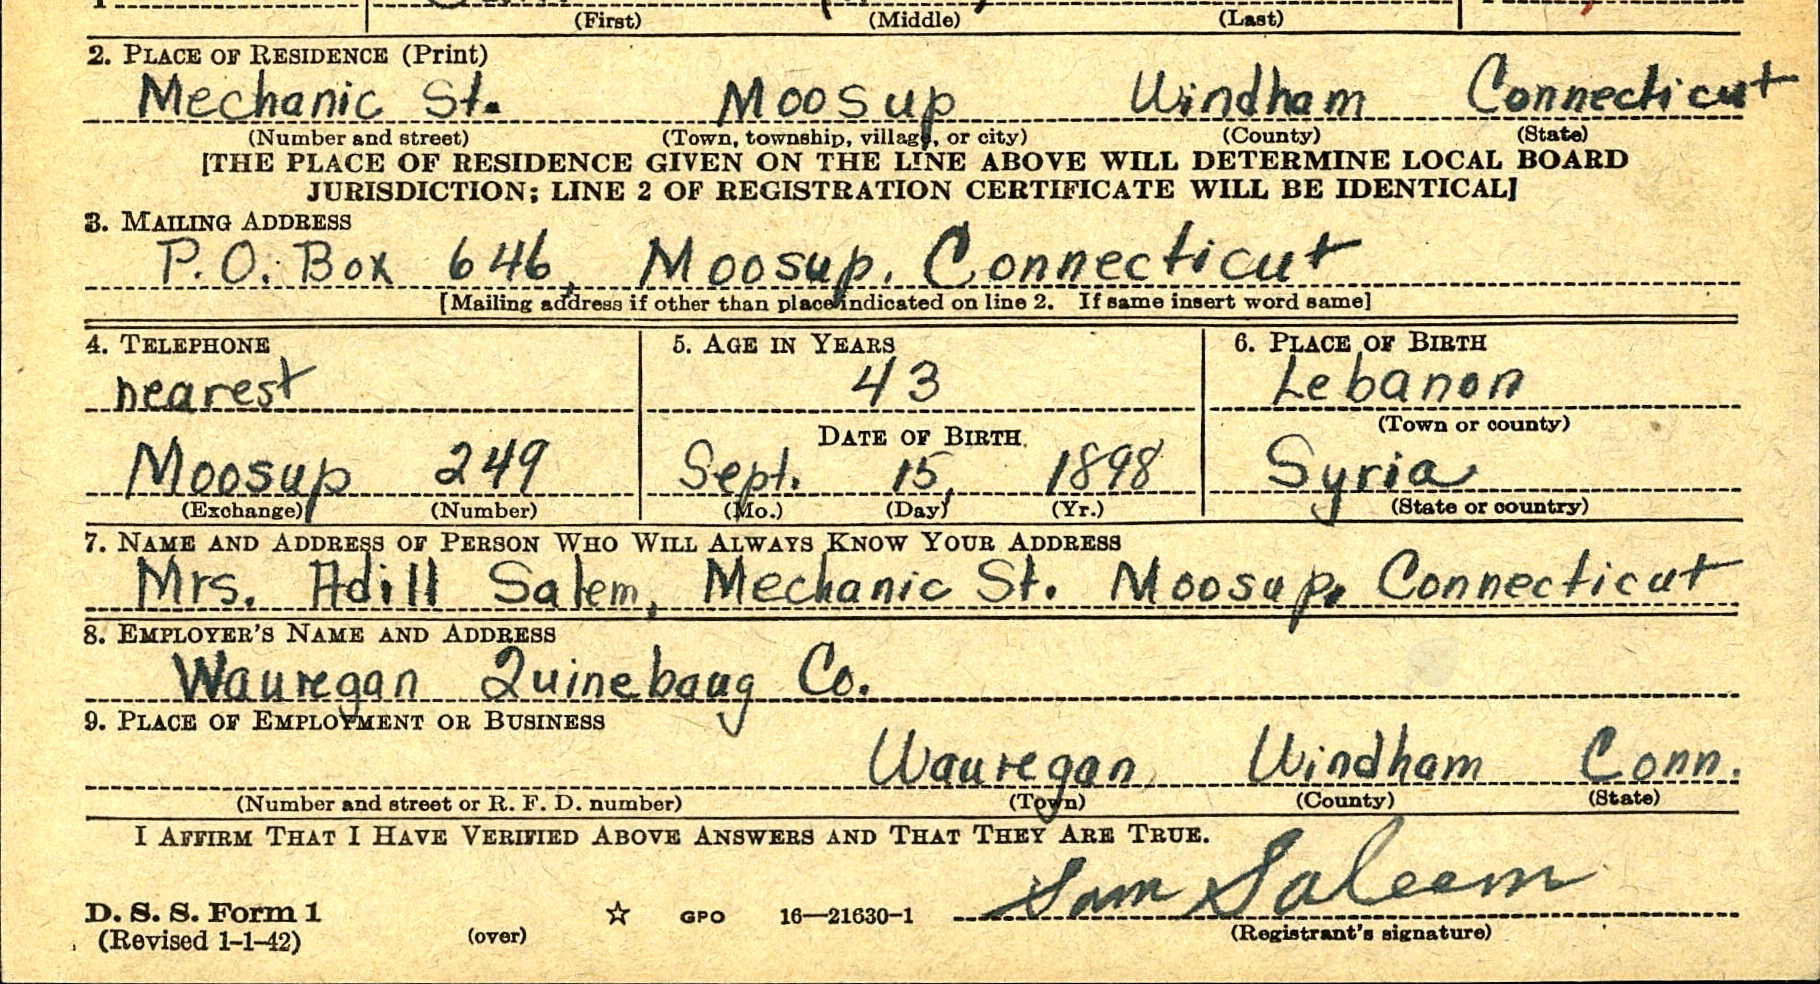 (First) (Middle) (Last)
2. PLACE OF RESIDENCE (Print)
Mechanic St. Moosup Windham Connecticut
(Number and street) (Town, township, village, or city) (County) (State)
[THE PLACE OF RESIDENCE GIVEN ON THE LINE ABOVE WILL DETERMINE LOCAL BOARD
JURISDICTION; LINE 2 OF REGISTRATION CERTIFICATE WILL BE IDENTICAL]
3. MAILING ADDRESS
P.O. Box 646, Moosup, Connecticut
[Mailing address if other than place indicated on line 2. If same insert word same]
4. TELEPHONE 5. AGE IN YEARS 6. PLACE OF BIRTH
nearest 43 Lebanon
DATE OF BIRTH (Town or county)
Moosup 249 Sept. 15, 1898 Syria
(Exchange) (Number) (Mo.) (Day) (Yr.) (State or country)
7. NAME AND ADDRESS OF PERSON WHO WILL ALWAYS KNOW YOUR ADDRESS
Mrs. Adill Salem, Mechanic St. Moosup, Connecticut
8. EMPLOYER'S NAME AND ADDRESS
Wauregan Quinebaug Co.
9. PLACE OF EMPLOYMENT OR BUSINESS
Wauregan Windham Conn.
(Number and street or R. F. D. number) (Town) (County) (State)
I AFFIRM THAT I HAVE VERIFIED ABOVE ANSWERS AND THAT THEY ARE TRUE.
Sam Saleem
D. S. S. Form 1 ☆ GPO 16—21630-1 (Registrant's signature)
(Revised 1-1-42) (over)